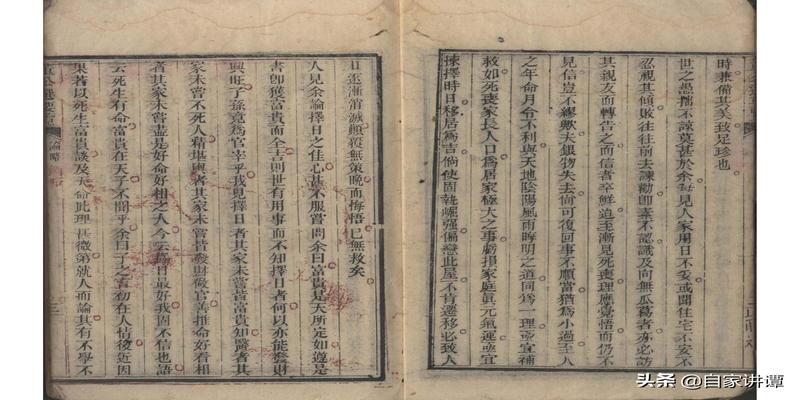 時兼備其美致足珍也
世之愚擂不諒莫甚於余每見人家用日不妥或開住宅不安不
忍視其傾敗往往前去諫勸即素不認識及向無瓜葛者亦必訪
其親友而轉告之而信者卒鮮迨至漸見死喪理應覺悟而仍不
見信豈不繆歟夫銀物失去尚可復回事不順當猶為小過至人
之年命月令不利與天地陰陽風雨晦明之道同為一理亟宜補
救如死喪家長人口為居家極大之事虧損家庭真元氣運亟宜
揀擇時日移居為吉倘使固執崛强偏戀此屋不肯遷移必致人
日逛漸消滅顛覆無策晚而悔悟已無救矣
人見余論擇日之佳心甚不服嘗問余曰富貴是天所定如遵是
書即獲富貴而全吉則世有用事而不知擇日者何以亦能發財
興旺子孫竟為官宰乎我見擇日者其家未嘗皆富貴知醫者其
家未嘗不死人精堪輿者其家未嘗皆發財做官善推命好看相
者其家未嘗盡是好命好相之人今云為日最好我固不信也語
云死生有命富貴在天子不聞乎余曰子之言切在人情後近因
果若以死生富貴談及天命此理甚微第就人而論其有不學不
論略
三
头条 @自家讲谭